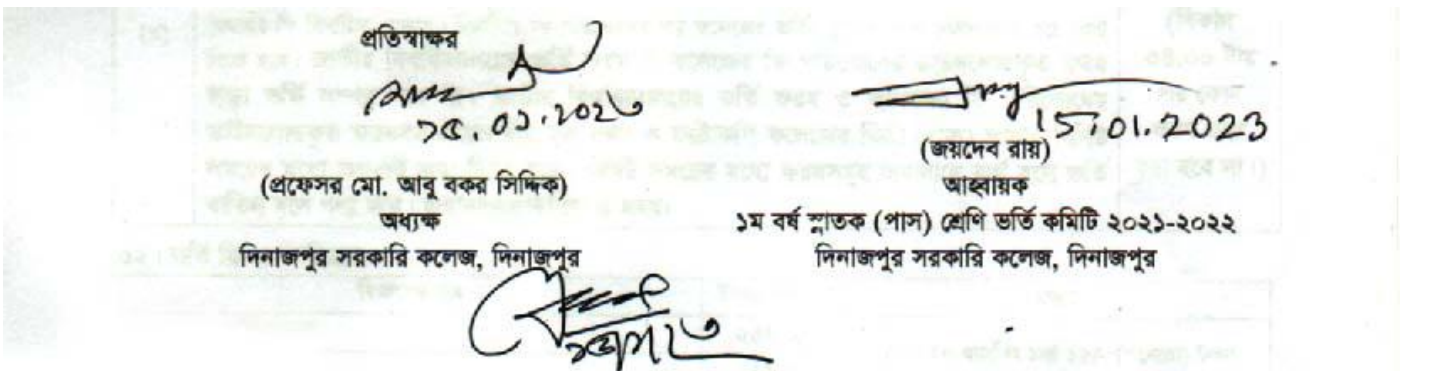 প্রতিস্বাক্ষর
১৫.০১.২০২৩
(প্রফেসর মো. আবু বকর সিদ্দিক)
অধ্যক্ষ
দিনাজপুর সরকারি কলেজ, দিনাজপুর
15.01.2023
(জয়দেব রায়)
আহ্বায়ক
১ম বর্ষ স্নাতক (পাস) শ্রেণি ভর্তি কমিটি ২০২১-২০২২
দিনাজপুর সরকারি কলেজ, দিনাজপুর